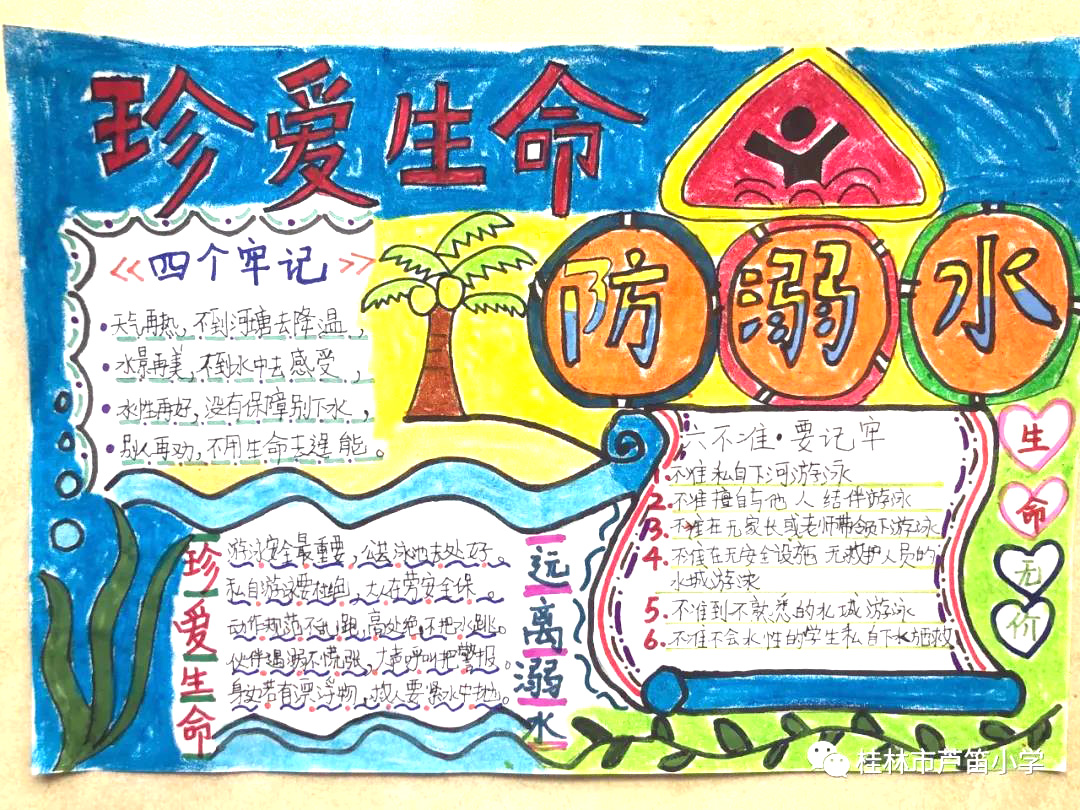 珍爱生命
防溺水
四个牢记
天气再热，不到河塘去降温，
水景再美，不到水中去感受，
水性再好，没有保障别下水，
别人再劝，不用生命去逞能。
六不准·要记牢
1.不准私自下河游泳
2.不准擅自与他人结伴游泳
3.不准在无家长或老师带领下游泳
4.不准在无安全设施 无救护人员的
水域游泳
5.不准到不熟悉的水域游泳
6.不准不会水性的学生私自下水施救
生
命
无
价
珍爱生命
游泳安全最重要，公共泳池去处好。
私自游泳要杜绝，大人在旁安全保。
动作规范不乱跳，高处免不把水跳。
伙伴遇溺不慌张，大声呼叫把警报。
身边若有漂浮物，救人要 水中抛。
远离溺水
桂林市芦笛小学